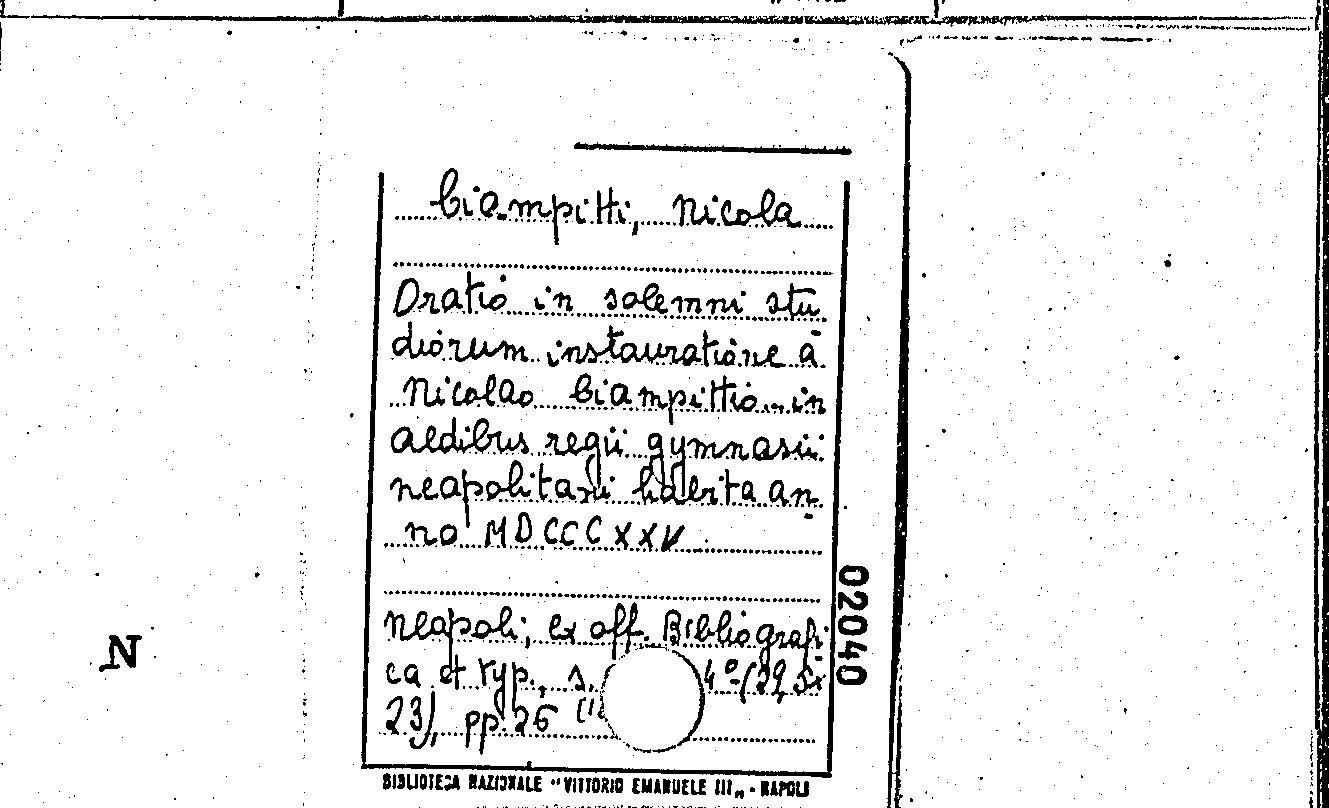 Ciampitti, Nicola
Oratio in solemni stu
diorum instauratione a
Nicolao Ciampittio in
aedibus regii gymnasii
neapolitani habita an
no MDCCCXXV
Neapoli, ex off. Bibliografi
ca et typ., s. 4º (29,5x
23), pp. 26
BIBLIOTECA NAZIONALE "VITTORIO EMANUELE III„ - NAPOLI
02040
N